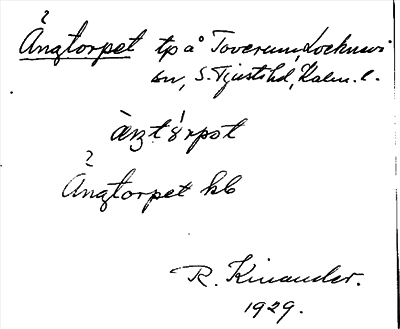 ?
Ängtorpet tp å Toverum, Locknevi
sn, S. Tjusts hd, Kalm. l.
ä̀ŋtórpət
?
Ängtorpet kb
R. Kinander.
1929.